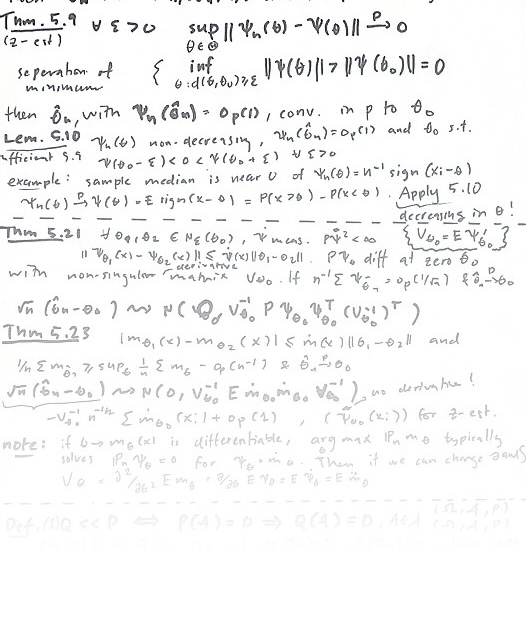 Thm. 5.9 ∀ ε>0 sup_{θ∈Θ} ||Ψn(θ) - Ψ(θ)|| →P 0
(z-est)
seperation of { inf_{θ:d(θ,θ0)≥ε} ||Ψ(θ)|| > ||Ψ(θ0)|| = 0
minimum
then θ̂n, with Ψn(θ̂n) = op(1), conv. in p to θ0
Lem. 5.10 Ψn(θ) non-decreasing, Ψn(θ̂n)=op(1) and θ0 s.t.
sufficient 5.9 Ψ(θ0-ε)<0<Ψ(θ0+ε) ∀ ε>0
example: sample median is near 0 of Ψn(θ)=n⁻¹ sign(xi-θ)
Ψn(θ) →P Ψ(θ) = E sign(x-θ) = P(x>θ) - P(x<θ). Apply 5.10
decreasing in θ!
Thm 5.21 ∀ θ1,θ2 ∈ Nε(θ0), ψ̇ meas. Pψ̇²<∞ {Vθ0 = E ψ̇θ0!}
||ψθ1(x) - ψθ2(x)|| ≤ ψ̇(x)||θ1-θ2||. Pψθ diff at zero θ0
with non-singular derivative matrix Vθ0. If n⁻¹ Σ ψθ̂n = op(1/√n) & θ̂n →P θ0
√n (θ̂n-θ0) ⇝ N(0, Vθ0⁻¹ P ψθ0 ψθ0ᵀ (Vθ0⁻¹)ᵀ)
Thm 5.23 |mθ1(x) - mθ2(x)| ≤ ṁ(x)||θ1-θ2|| and
1/n Σ mθ̂n ≥ supθ 1/n Σ mθ - op(n⁻¹) & θ̂n →P θ0
√n (θ̂n-θ0) ⇝ N(0, Vθ0⁻¹ E ṁθ0 ṁθ0 Vθ0⁻¹), no derivative!
-Vθ0⁻¹ n⁻¹ᐟ² Σ ṁθ0(xi) + op(1), (ψθ0(xi)) for z-est.
note: if θ→mθ(x) is differentiable, arg max Pn mθ typically
solves Pn ψθ = 0 for ψθ = ṁθ. Then if we can change ∂ and ∫
Vθ = ∂²/∂θ² E mθ = ∂/∂θ E ψθ = E ψ̇θ = E m̈θ
Def. (1) Q << P ⟺ P(A)=0 ⟹ Q(A)=0, A∈A (Ω, A, P)